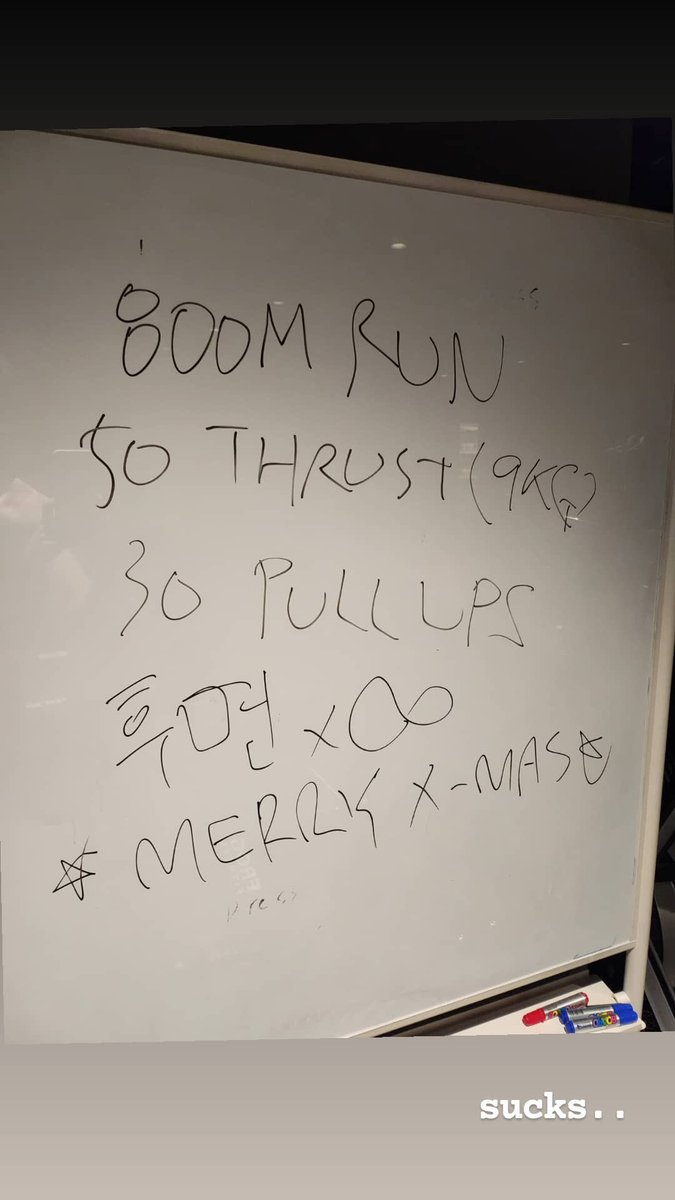 800M RUN
50 THRUST (9KG)
30 PULL UPS
후면 x ∞
☆ MERRY X-MAS ☆
sucks..